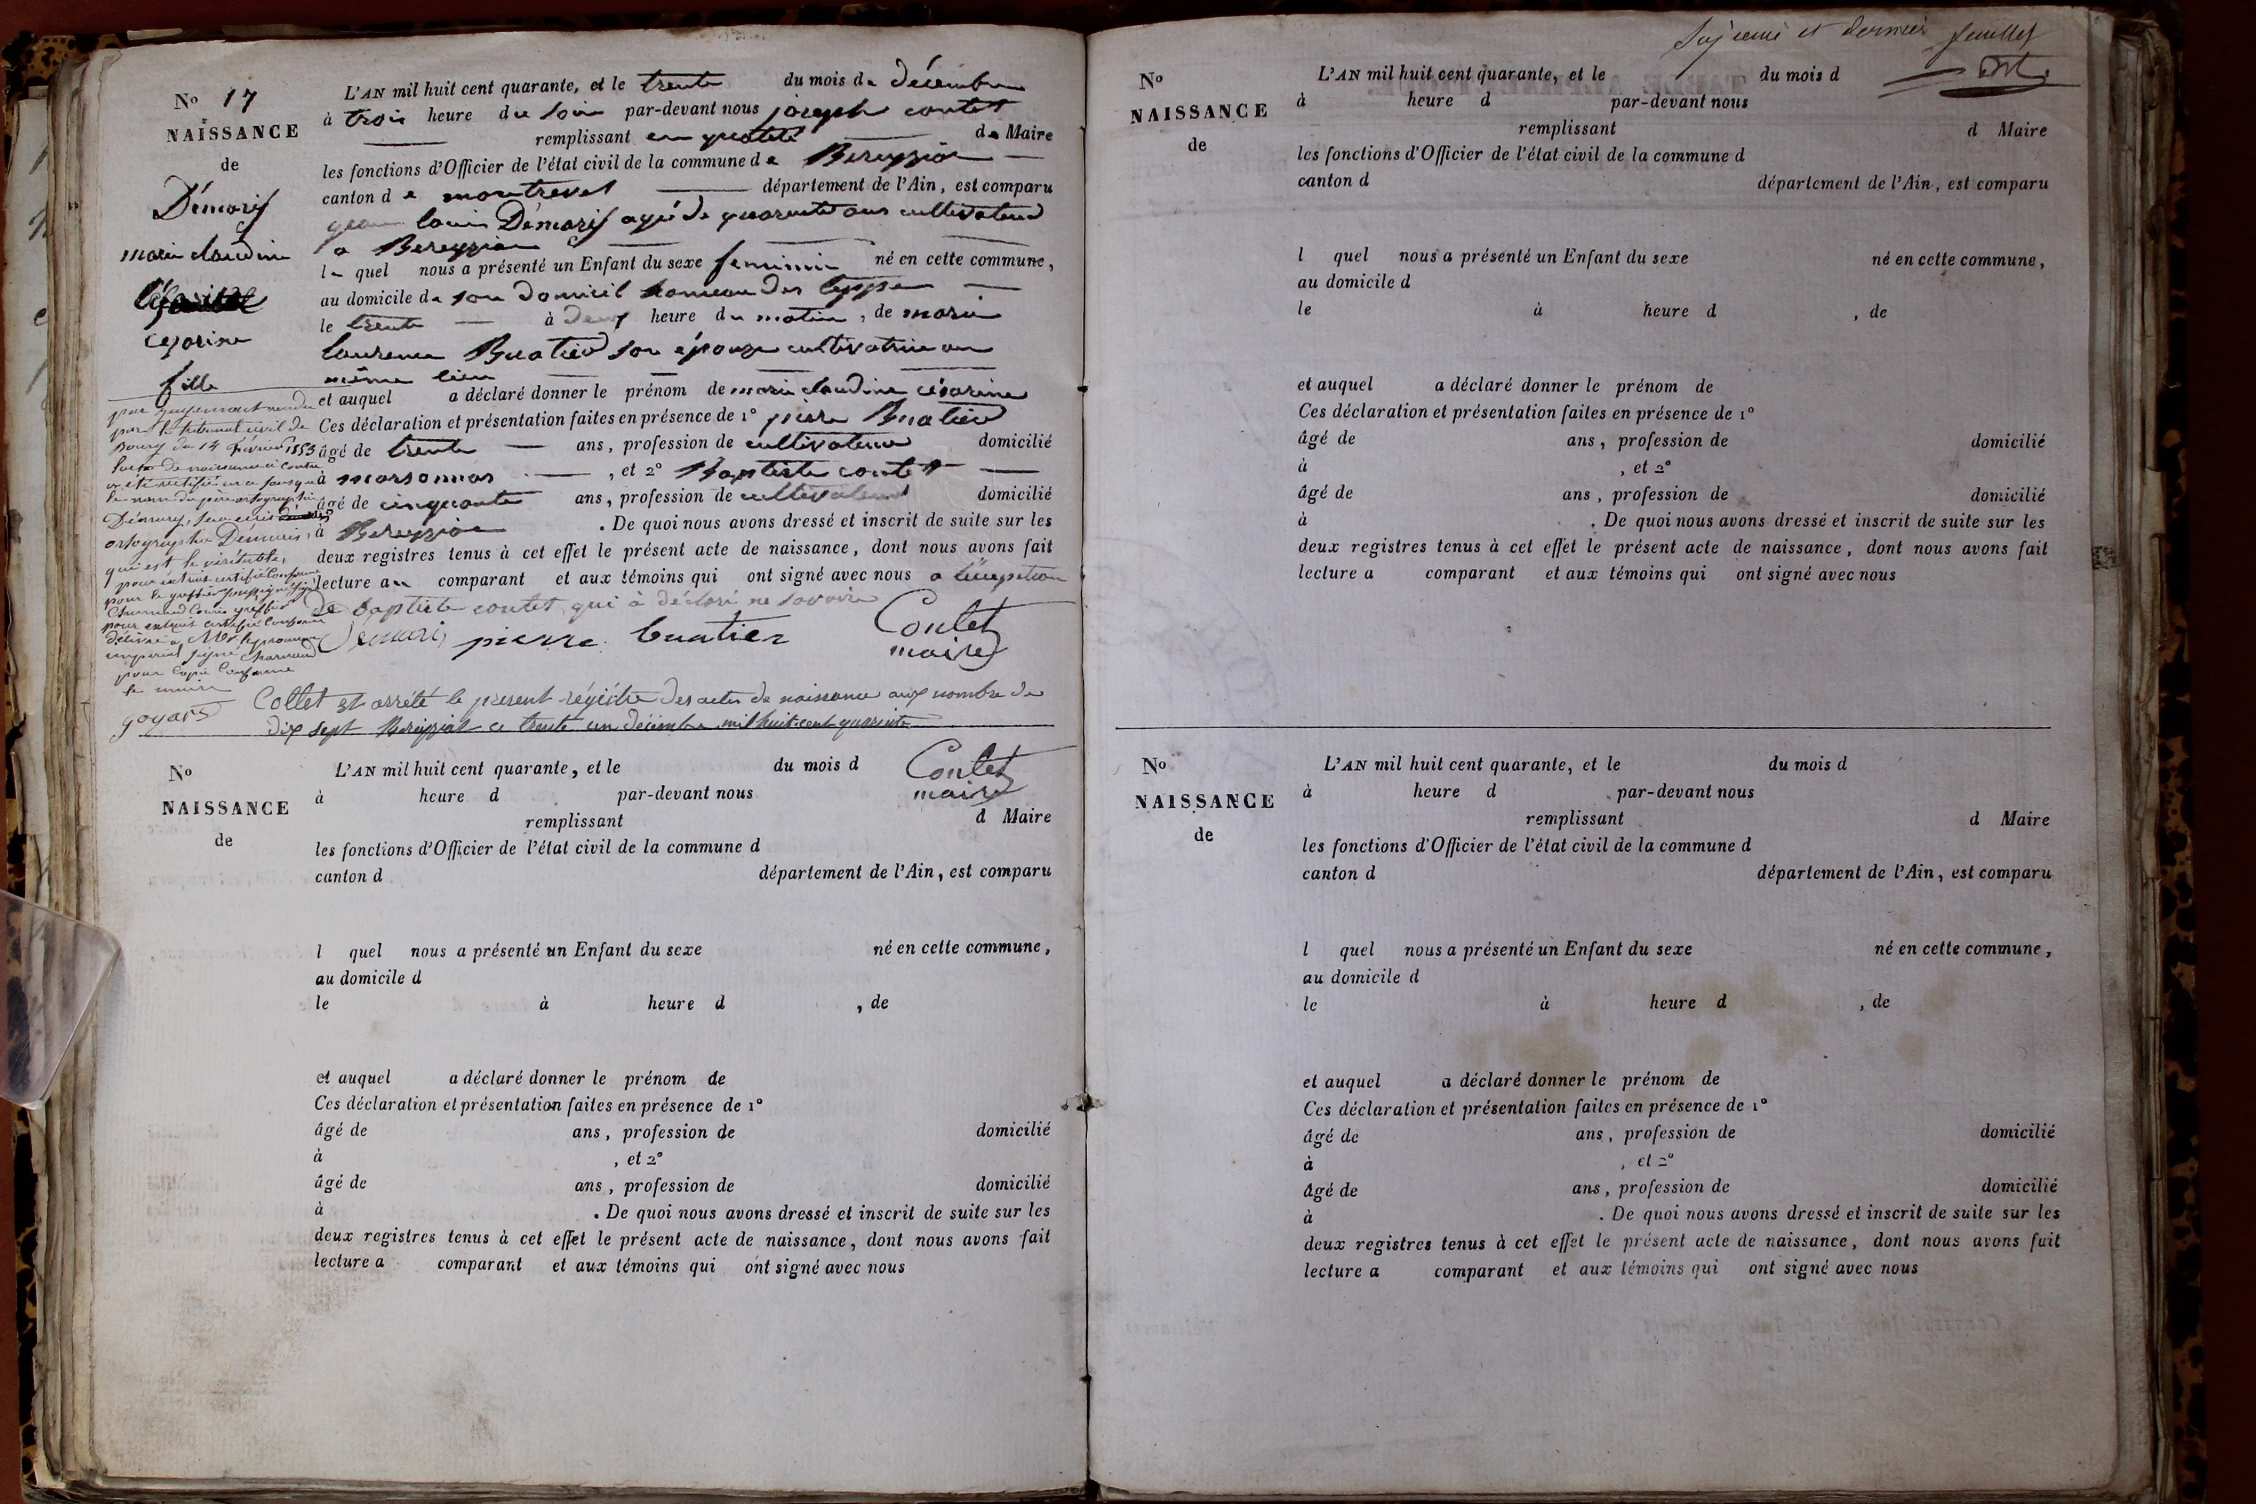 No 17
NAISSANCE
de
Démarif
marie claudine
césarine
fille
L'AN mil huit cent quarante, et le trente du mois de décembre
à trois heure du soir par-devant nous joseph contet
remplissant en qualité de Maire
les fonctions d'Officier de l'état civil de la commune de Bereyziat
canton de montrevel département de l'Ain, est comparu
jean louis Démarif agé de quarente ans cultivateur
a Bereyziat
le quel nous a présenté un Enfant du sexe feminin né en cette commune,
au domicile de son domicil hameau des
le trente à deux heure du matin, de marie
laurence Buatier son épouze cultivatrice au
même lieu
et auquel a déclaré donner le prénom de marie claudine césarine
Ces déclaration et présentation faites en présence de 1° pierre Buatier
âgé de trente ans, profession de cultivateur domicilié
à marsonnas, et 2° Baptiste contet
âgé de cinquante ans, profession de cultivateur domicilié
à Bereyziat. De quoi nous avons dressé et inscrit de suite sur les
deux registres tenus à cet effet le présent acte de naissance, dont nous avons fait
lecture au comparant et aux témoins qui ont signé avec nous a l'éception
de baptiste contet qui à déclaré ne savoir
Demaris pierre buatier Contet
maire
par jugement rendu
par le tribunal civil de
Bourg du 14 Février 1853
l'acte de naissance ci contre
a été rectifié en ce sens que
le nom du père ortographié
Démarif, sera écrit
ortographe Démaris,
qui est le véritable,
pour extrait certifié conforme
pour le greffier
greffier
pour extrait certifié conforme
délivré à Mr le procureur
imperial signé Charnaud
pour copie conforme
le maire
goyard
Collet et arrété le present régistre des actes de naissance aux nombre de
dix sept Bereiziat ce trente un décembre mil huit cent quarente
Contet
maire
No
NAISSANCE
de
L'AN mil huit cent quarante, et le du mois d
à heure d par-devant nous
remplissant d Maire
les fonctions d'Officier de l'état civil de la commune d
canton d département de l'Ain, est comparu
l quel nous a présenté un Enfant du sexe né en cette commune,
au domicile d
le à heure d , de
et auquel a déclaré donner le prénom de
Ces déclaration et présentation faites en présence de 1°
âgé de ans, profession de domicilié
à , et 2°
âgé de ans, profession de domicilié
à . De quoi nous avons dressé et inscrit de suite sur les
deux registres tenus à cet effet le présent acte de naissance, dont nous avons fait
lecture a comparant et aux témoins qui ont signé avec nous
et dernier feuillet
No
NAISSANCE
de
L'AN mil huit cent quarante, et le du mois d
à heure d par-devant nous
remplissant d Maire
les fonctions d'Officier de l'état civil de la commune d
canton d département de l'Ain, est comparu
l quel nous a présenté un Enfant du sexe né en cette commune,
au domicile d
le à heure d , de
et auquel a déclaré donner le prénom de
Ces déclaration et présentation faites en présence de 1°
âgé de ans, profession de domicilié
à , et 2°
âgé de ans, profession de domicilié
à . De quoi nous avons dressé et inscrit de suite sur les
deux registres tenus à cet effet le présent acte de naissance, dont nous avons fait
lecture a comparant et aux témoins qui ont signé avec nous
No
NAISSANCE
de
L'AN mil huit cent quarante, et le du mois d
à heure d par-devant nous
remplissant d Maire
les fonctions d'Officier de l'état civil de la commune d
canton d département de l'Ain, est comparu
l quel nous a présenté un Enfant du sexe né en cette commune,
au domicile d
le à heure d , de
et auquel a déclaré donner le prénom de
Ces déclaration et présentation faites en présence de 1°
âgé de ans, profession de domicilié
à , et 2°
âgé de ans, profession de domicilié
à . De quoi nous avons dressé et inscrit de suite sur les
deux registres tenus à cet effet le présent acte de naissance, dont nous avons fait
lecture a comparant et aux témoins qui ont signé avec nous